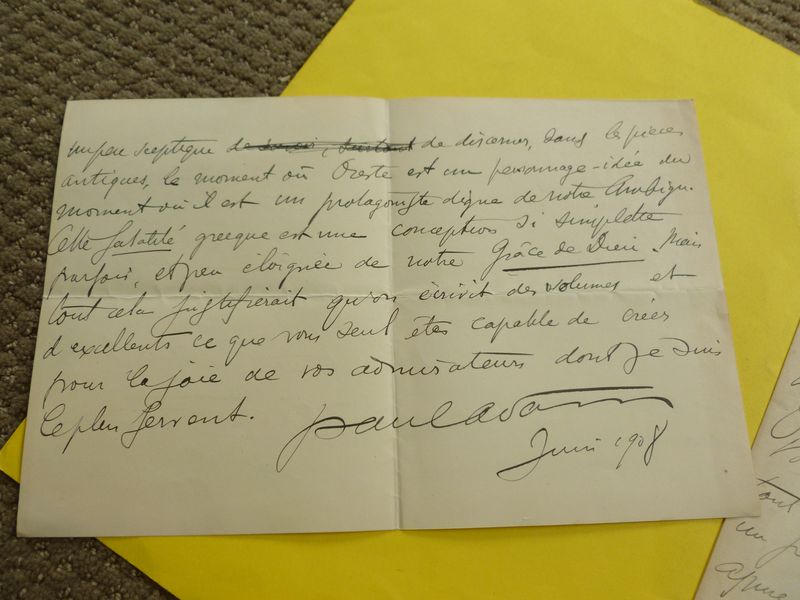 un peu sceptique de discerner, dans les pièces
antiques, le moment où Oreste est un personnage-idée du
moment où il est un protagoniste digne de notre Ambigu.
Cette fatalité grecque est une conception si simplette
parfois, et peu éloignée de notre Grâce de Dieu. Mais
tout cela justifierait qu'on écrivit des volumes et
d'excellents ce que vous seul êtes capable de créer
pour la joie de vos admirateurs dont je suis
le plus fervent.
Paul Adam
Juin 1908
tout
un p